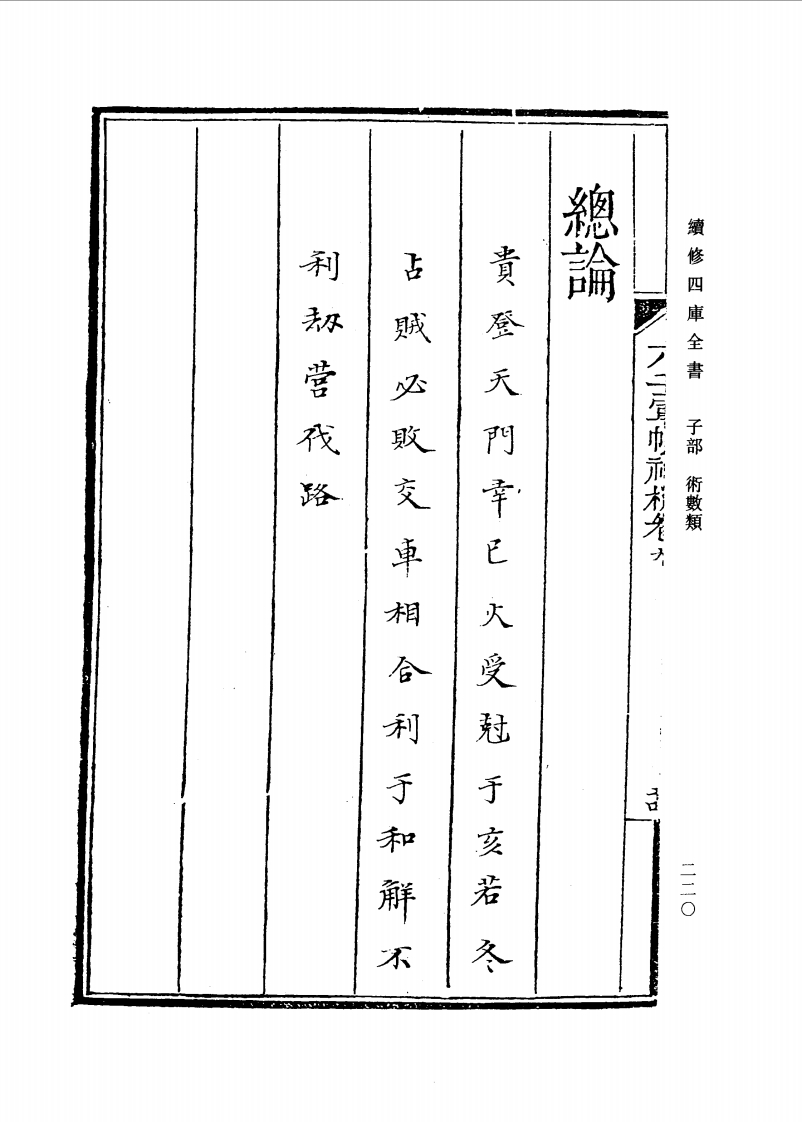 續修四庫全書 子部 術數類
二二〇
六壬軍帳神機卷
總論
貴登天門幸巳火受尅于亥若冬
占賊必敗交車相合利于和觧不
利刼营伐路